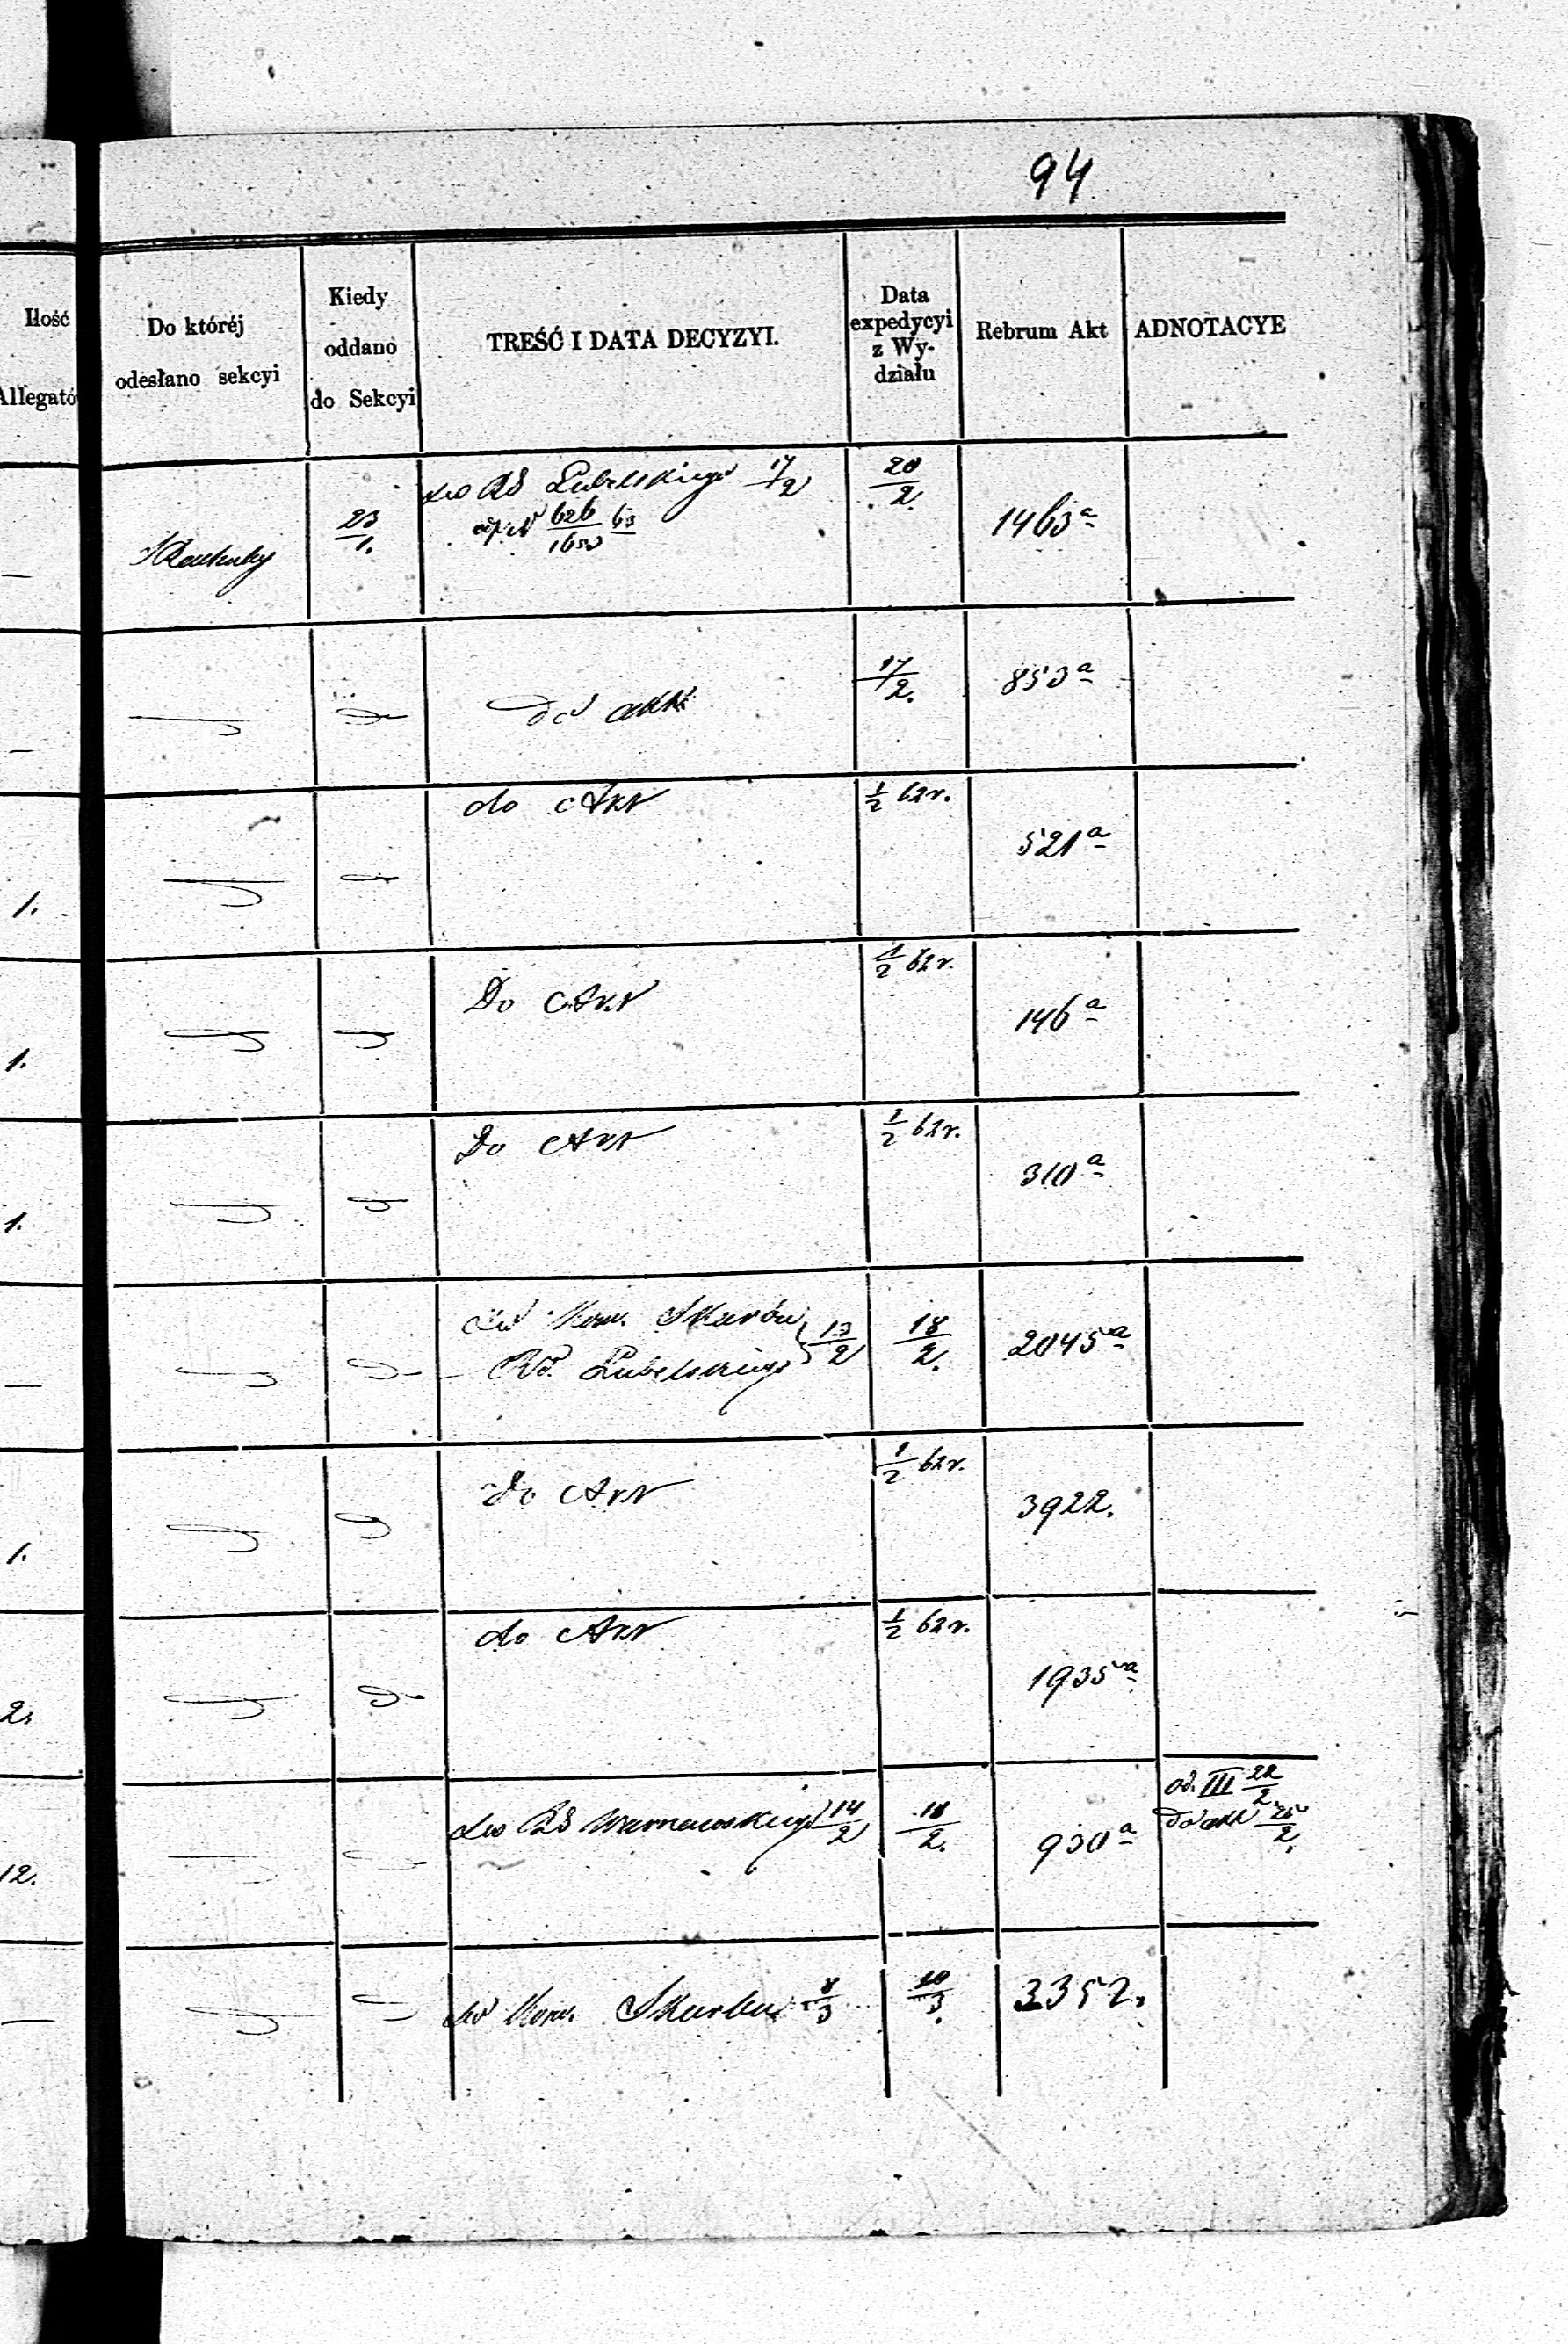 94
Ilość
Allegató
Do któréj
odesłano sekcyi
Kiedy
oddano
do Sekcyi
TREŚĆ I DATA DECYZYI.
Data
expedycyi
z Wy-
działu
Rebrum Akt
ADNOTACYE
23/1.
do RG Lubelskiego 17/2
626/1650 63
20/2.
1463 a
—
do akt
17/2.
853 a
1.
do Akt
1/2 62 r.
521 a
1.
Do Akt
1/2 62 r.
146 a
1.
Do Akt
1/2 62 r.
310 a
—
do Kom. Skarbu
RG. Lubelskiego } 13/2
18/2.
2045 a
1.
Do Akt
1/2 62 r.
3922.
2.
do Akt
1/2 62 r.
1935 a
12.
do RG Warszawskiego 14/2
18/2.
930 a
od. III 22/2.
do akt 25/2.
—
do Kom. Skarbu 8/3
10/3.
3352.